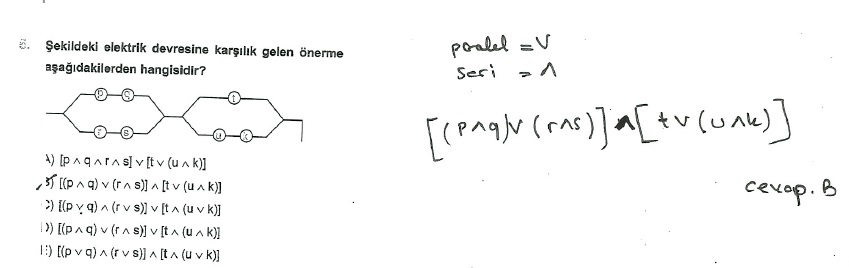 6. Şekildeki elektrik devresine karşılık gelen önerme
aşağıdakilerden hangisidir?
p q
t
r s
u k
A) [p ∧ q ∧ r ∧ s] ∨ [t ∨ (u ∧ k)]
B) [(p ∧ q) ∨ (r ∧ s)] ∧ [t ∨ (u ∧ k)]
C) [(p ∨ q) ∧ (r ∨ s)] ∨ [t ∧ (u ∨ k)]
D) [(p ∧ q) ∨ (r ∧ s)] ∨ [t ∧ (u ∧ k)]
E) [(p ∨ q) ∧ (r ∨ s)] ∧ [t ∧ (u ∨ k)]
paralel = ∨
seri = ∧
[(p∧q)∨(r∧s)]∧[t∨(u∧k)]
cevap. B